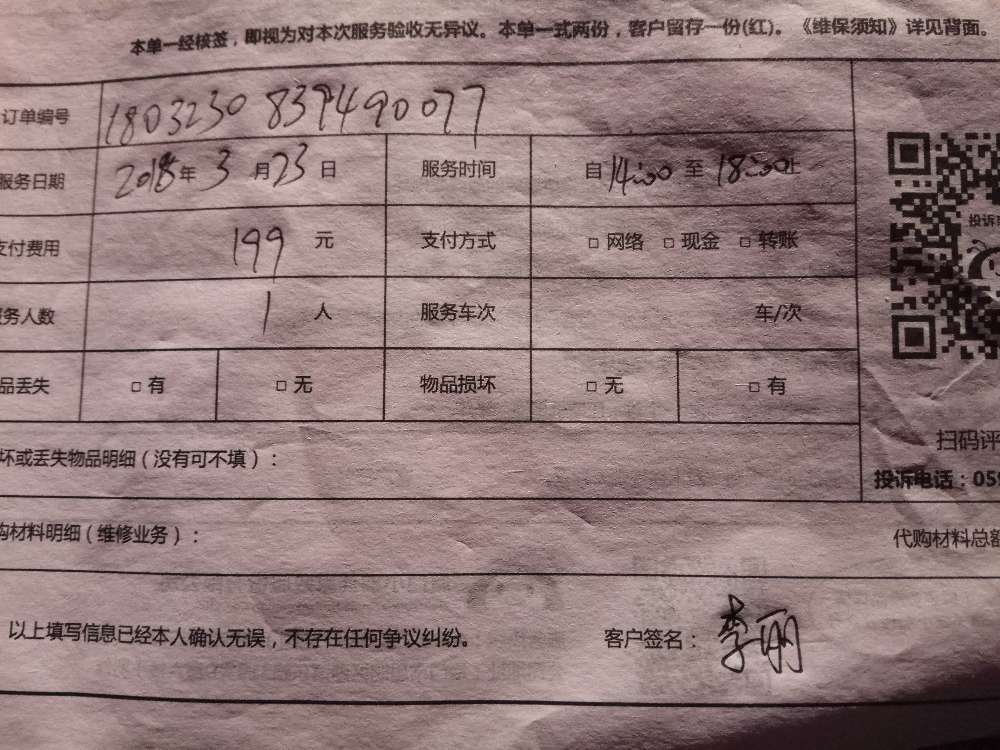 本单一经核签，即视为对本次服务验收无异议。本单一式两份，客户留存一份(红)。《维保须知》详见背面。
订单编号 1803230837490077
服务日期 2018年3月23日 服务时间 自14:00至18:00止
支付费用 199元 支付方式 □ 网络 □ 现金 □ 转账
务人数 1人 服务车次 车/次
品丢失 □ 有 □ 无 物品损坏 □ 无 □ 有
投诉
扫码评
坏或丢失物品明细（没有可不填）：
投诉电话：059
购材料明细（维修业务）： 代购材料总额
以上填写信息已经本人确认无误，不存在任何争议纠纷。 客户签名：李丽